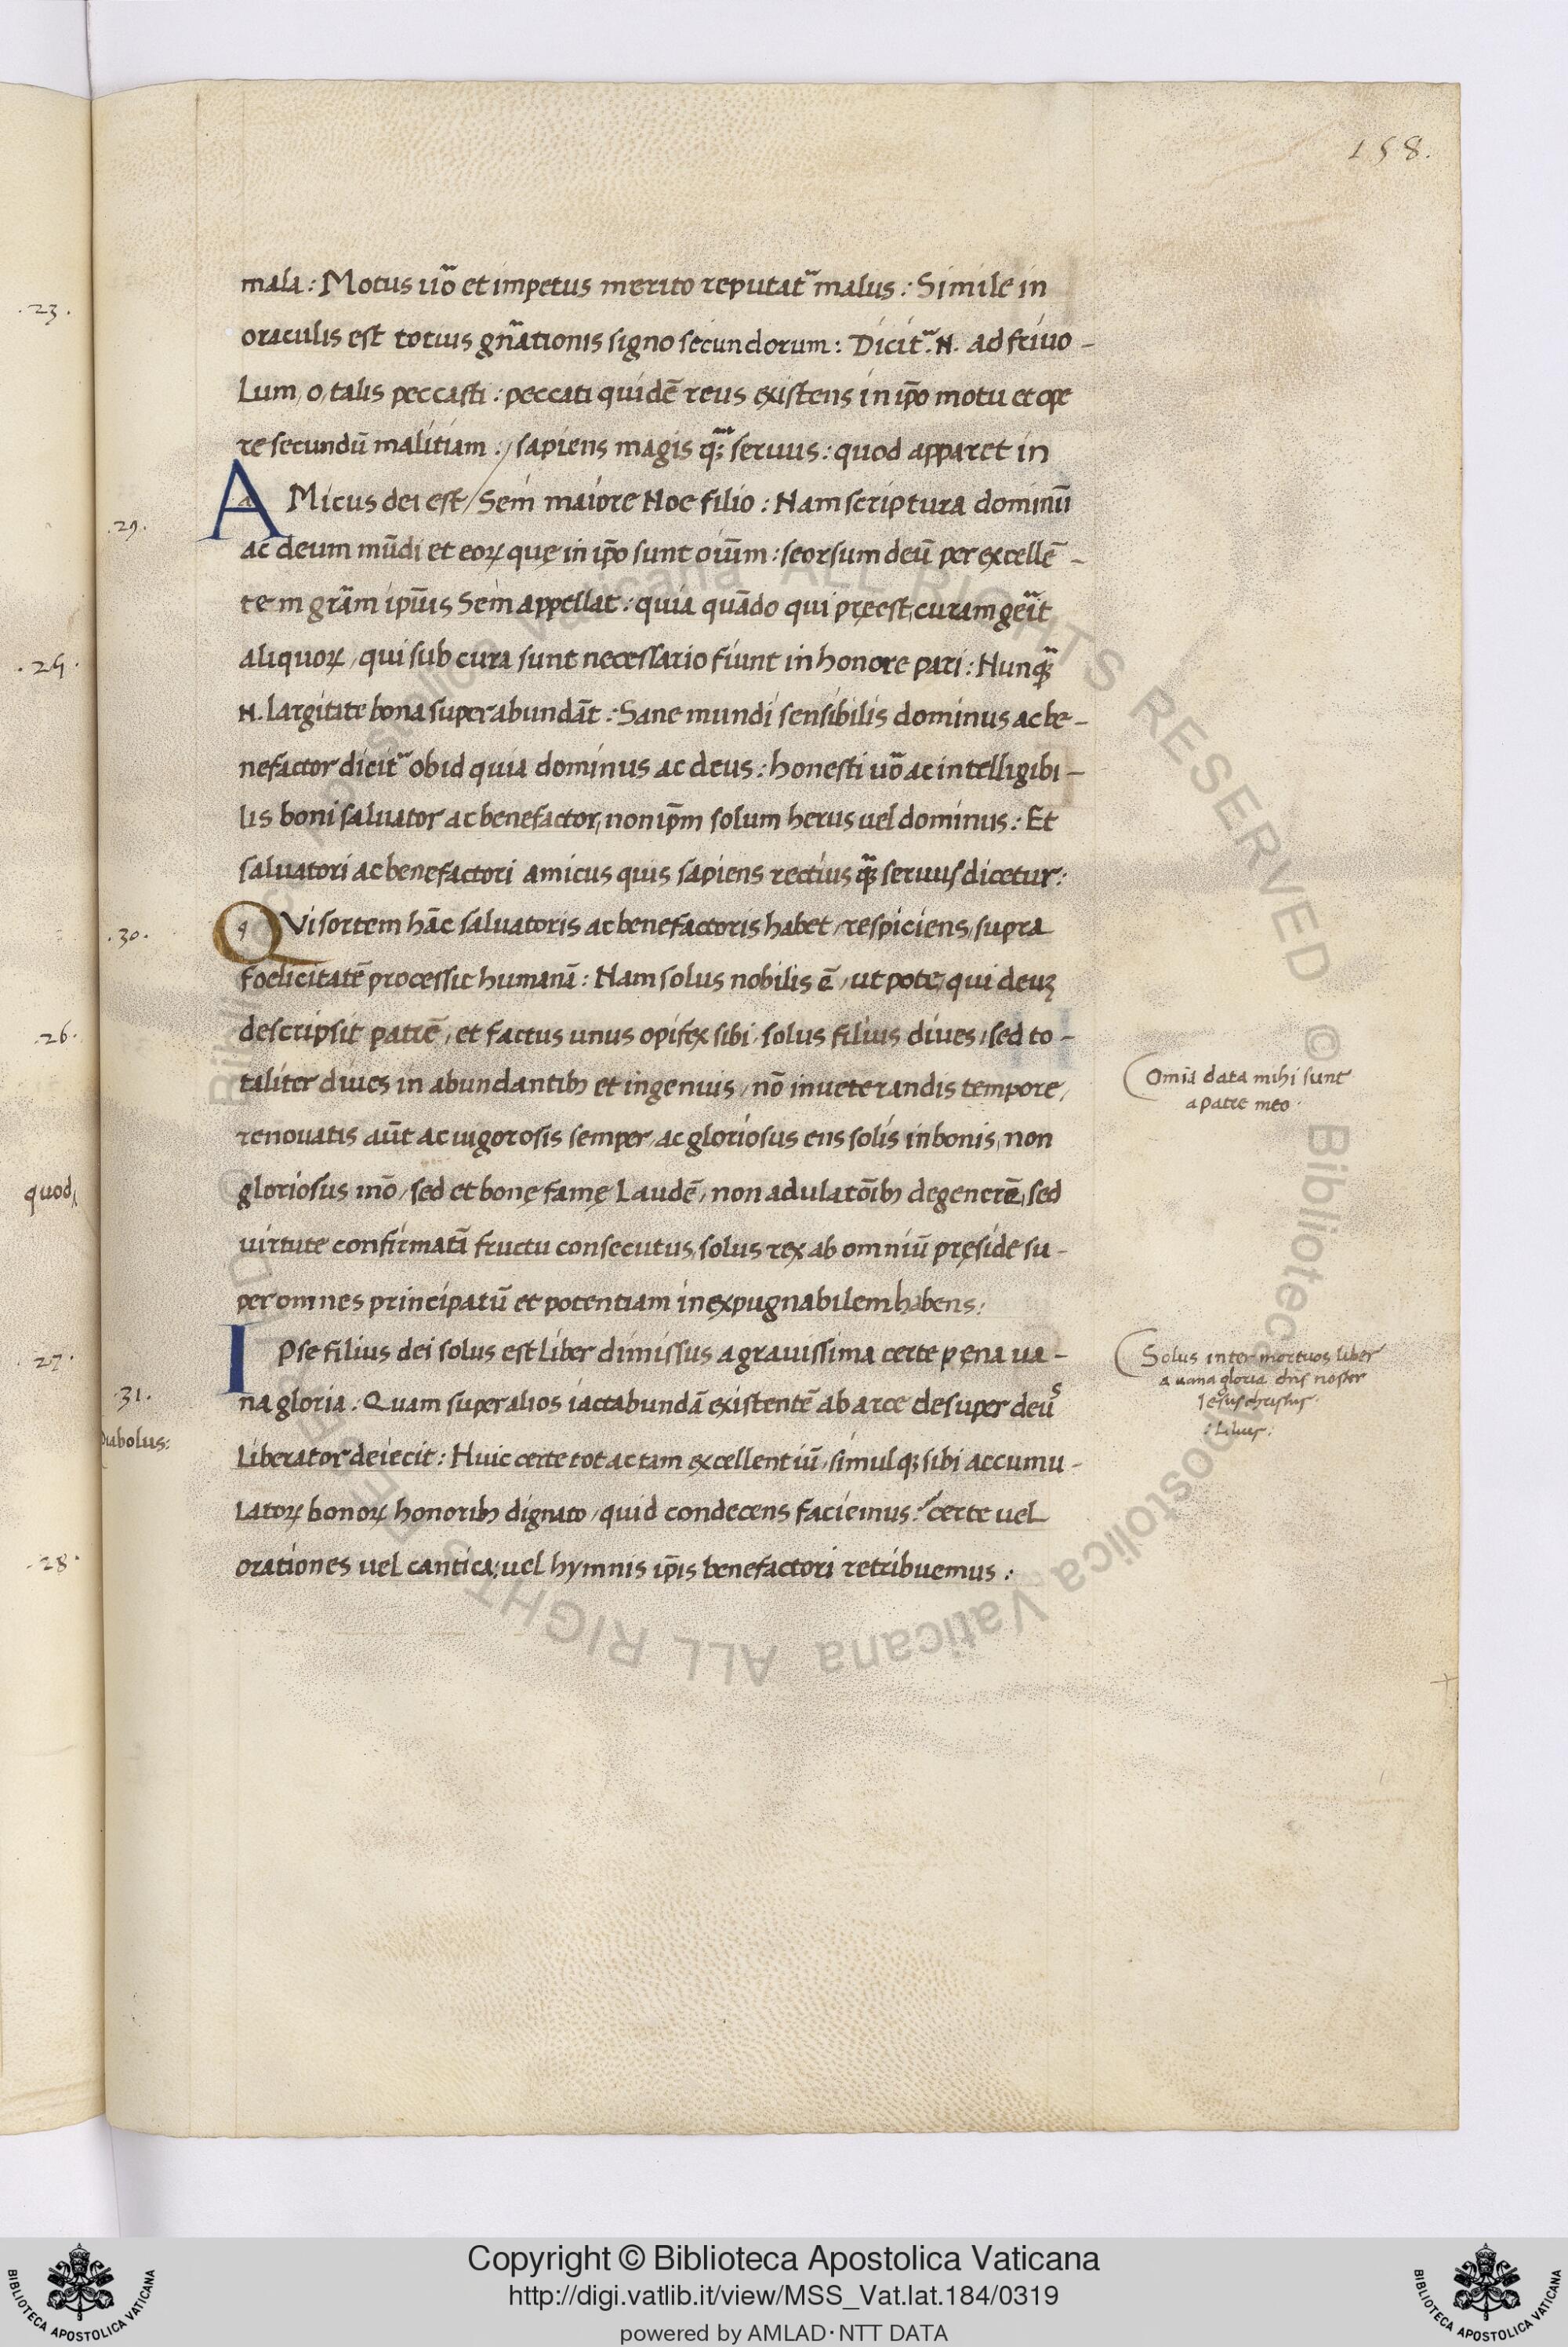 158.
mala : Motus uoᷓ et impetus merito reputatᷓ malus : Simile in
oraculis est totius gnᷓationis signo secundorum : Dicitᷓ. N. ad friuo-
Lum, o, talis peccasti : peccati quidē reus existens in ip̄o motu et ope
re secundū malitiam :/ sapiens magis qᷓ; seruus : quod apparet in
AMicus dei est / Sem maiore Noe filio : Nam scriptura dominū
ac deum mūdi et eoꝝ quę in ip̄o sunt oiūm : seorsum deū per excellē-
tem grām ipiūs Sem appellat : quia quādo qui pręest, curam geᷓit
aliquoꝝ, qui sub cura sunt necessario fiunt in honore pari : Nunqᷓ;
N. largitate bona superabundāt : Sane mundi sensibilis dominus ac be-
nefactor dicitᷓ ob id quia dominus ac deus : honesti uoᷓ ac intelligibi-
lis boni saluator ac benefactor, non ip̄m solum herus uel dominus : Et
saluatori ac benefactori amicus quis sapiens rectius qᷓ; seruus dicetur :
QVi sortem hāc saluatoris ac benefactoris habet, respiciens, supra
foelicitatē processit humanā : Nam solus nobilis ē, ut pote, qui deuꝫ
descripsit patrē, et factus unus opifex sibi, solus filius diues, sed to-
taliter diues in abundantibꝫ et ingenuis, nō inueterandis tempore,
renouatis aūt ac uigorosis semper, ac gloriosus ens solis in bonis, non
gloriosus mō, sed et bonę famę Laudē, non adulatōibꝫ degenerē, sed
uirtute confirmatā fructu consecutus, solus rex ab omniū pręside su-
per omnes principatū et potentiam inexpugnabilem habens :
IPse filius dei solus est Liber dimissus a grauissima certe pęna ua-
na gloria : Quam super alios iactabundā existentē ab arce desuper deus
Liberator deiecit : Huic certe tot ac tam excellentiū, simulqꝫ sibi accumu-
Latoꝝ bonoꝝ honoribꝫ dignato, quid condecens faciemus ? certe uel
orationes uel cantica, uel hymnis ip̄is benefactori retribuemus :
.29.
.30.
.31.
Omīa data mihi sunt
a patre meo.
Solus inter mortuos liber
a uana gloria dn̄s noster
Iesus christus
filius :
.23.
.25.
.26.
quod,
.27.
Diabolus:
.28.
© Biblioteca Apostolica Vaticana ALL RIGHTS RESERVED
© Biblioteca Apostolica Vaticana ALL RIGHTS RESERVED
Copyright © Biblioteca Apostolica Vaticana
http://digi.vatlib.it/view/MSS_Vat.lat.184/0319
powered by AMLAD·NTT DATA
BIBLIOTECA APOSTOLICA VATICANA
BIBLIOTECA APOSTOLICA VATICANA